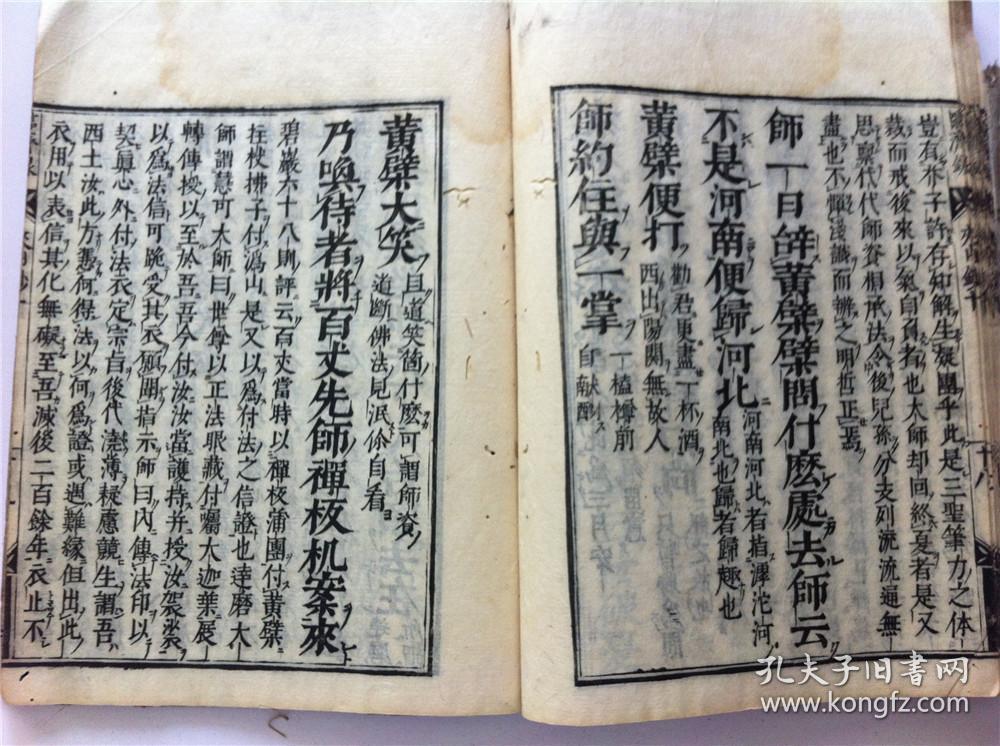 豈有弥子許存知解生疑團乎此是三聖筆力之体
裁而戒後來以氣自負者也大師却回終夏者是又
思禀代代師資相承法令後兒孫分支列流流遍無
盡也不憚淺識而辨之明哲正焉
師一日辞黄檗檗問什麽處去師云
不是河南便歸河北
河南河北者指滹沱河
南北也歸者歸趣也
黄檗便打
勸君更盡一杯酒
西出陽關無故人
師約住與一掌
一榼樽前
自献酬
黄檗大笑
且道笑箇什麽可謂師資
道断佛法見泯你自看
乃喚侍者將百丈先師禪板机案來
碧巖六十八則評云百丈當時以禪板蒲團付黄檗
拄杖拂子付潙山是又以爲付法之信證也達磨大
師謂慧可大師曰世尊以正法眼藏付囑大迦葉展
轉傳授以至於吾吾今付汝汝當護持并授汝袈裟
以爲法信可跪受其衣願聞指示師曰内傳法印以
契眞心外付法衣定宗旨後代澆薄疑慮競生謂吾
西土汝此方憑何得法以何爲證或遇難縁但出此
衣用以表信其化無礙至吾滅後二百餘年衣止不
孔夫子旧書网
www.kongfz.com